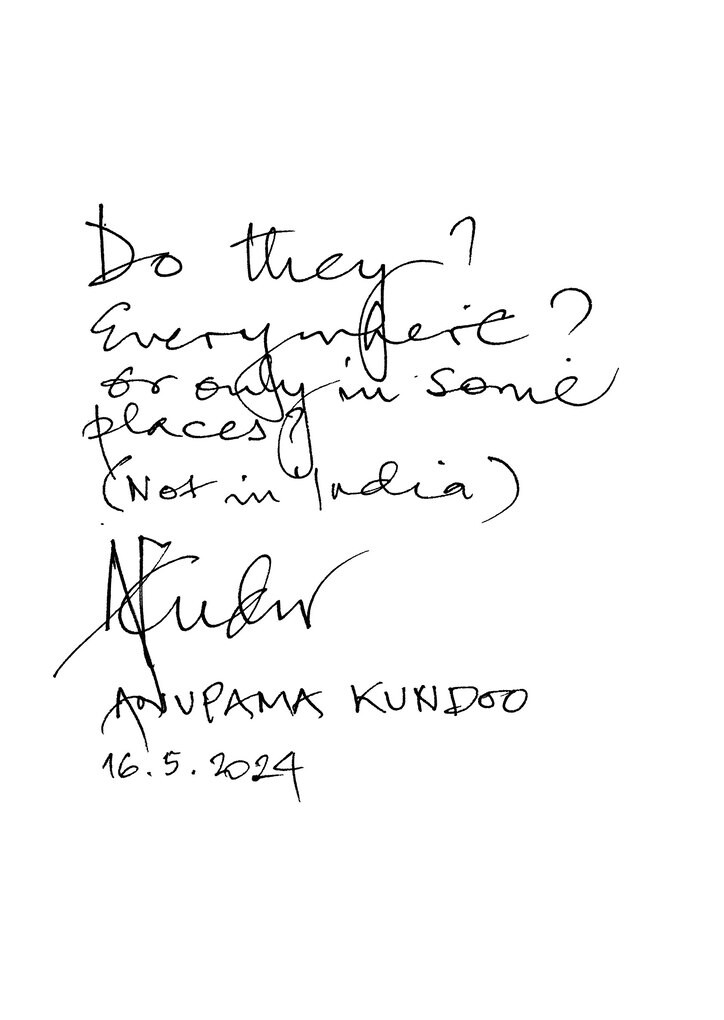 Do they?
Everywhere?
or only in some
places?
(Not in India)
AKundoo
ANUPAMA KUNDOO
16.5.2024